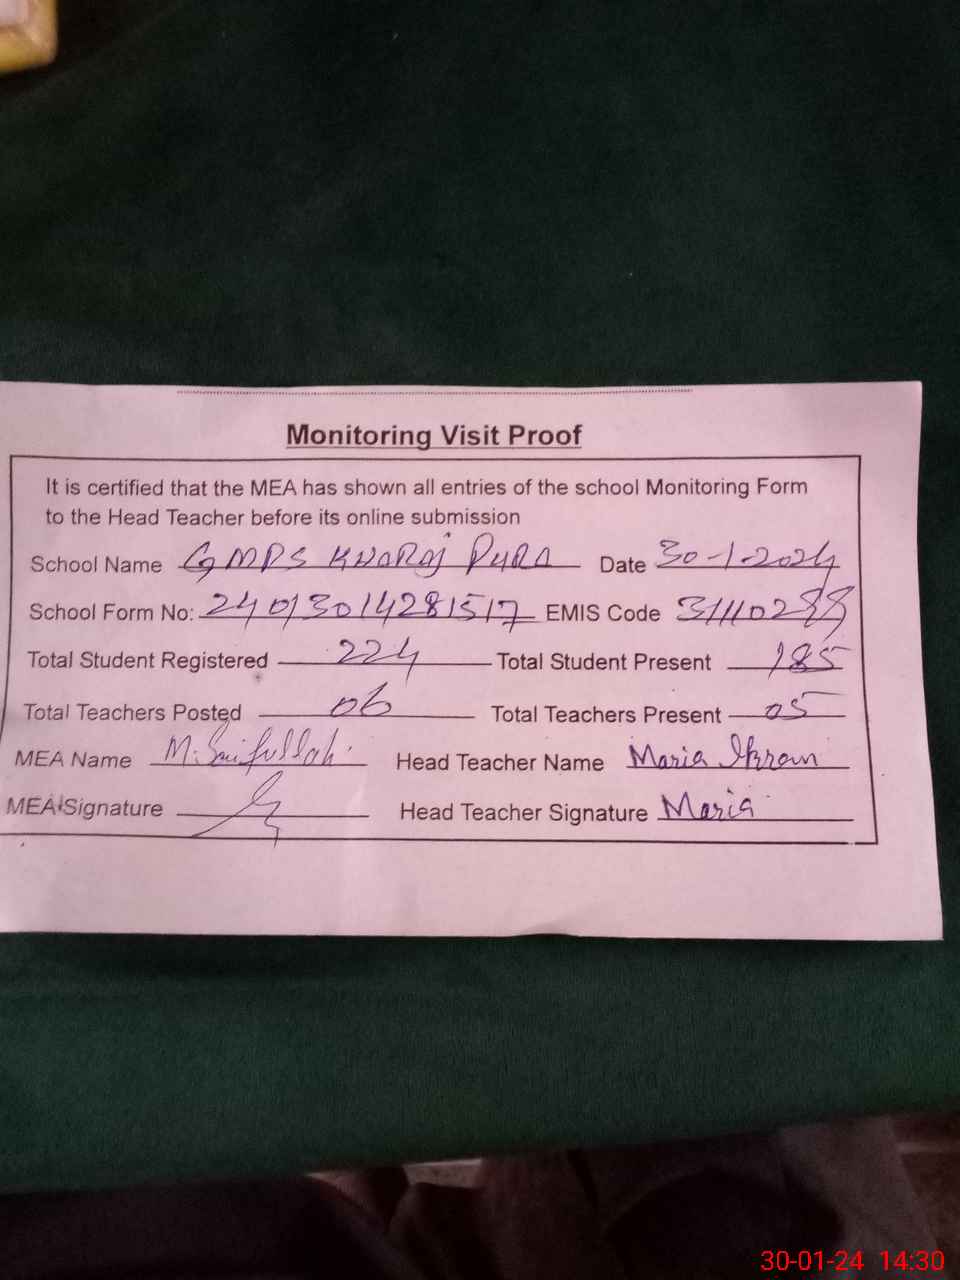 Monitoring Visit Proof
It is certified that the MEA has shown all entries of the school Monitoring Form
to the Head Teacher before its online submission
School Name GMPS KHARAJ PURA Date 30-1-2024
School Form No: 24013014281517 EMIS Code 31110288
Total Student Registered 224 Total Student Present 185
Total Teachers Posted 06 Total Teachers Present 05
MEA Name M. Saifullah Head Teacher Name Maria Ikram
MEA Signature Head Teacher Signature Maria
30-01-24 14:30